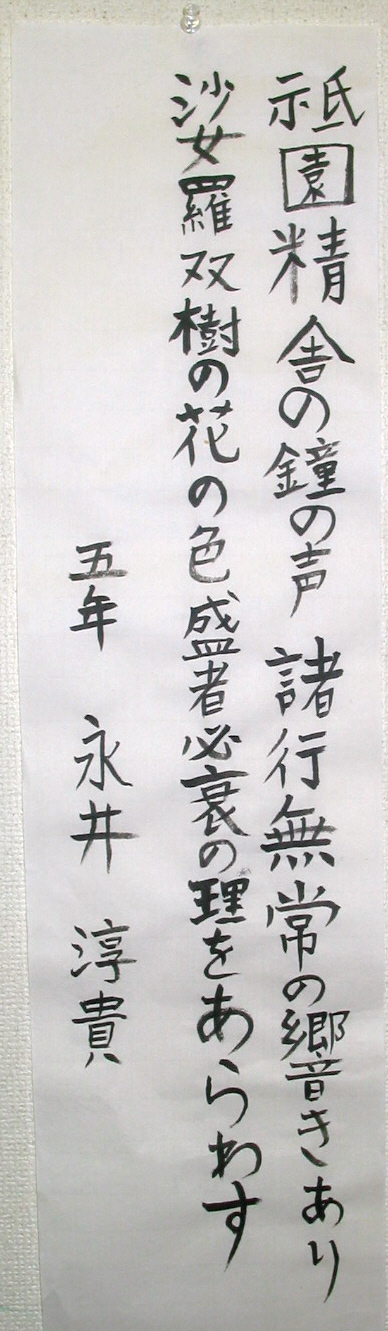 祗園精舎の鐘の声 諸行無常の響きあり
沙女羅双樹の花の色 盛者必衰の理をあらわす
五年 永井 淳貴